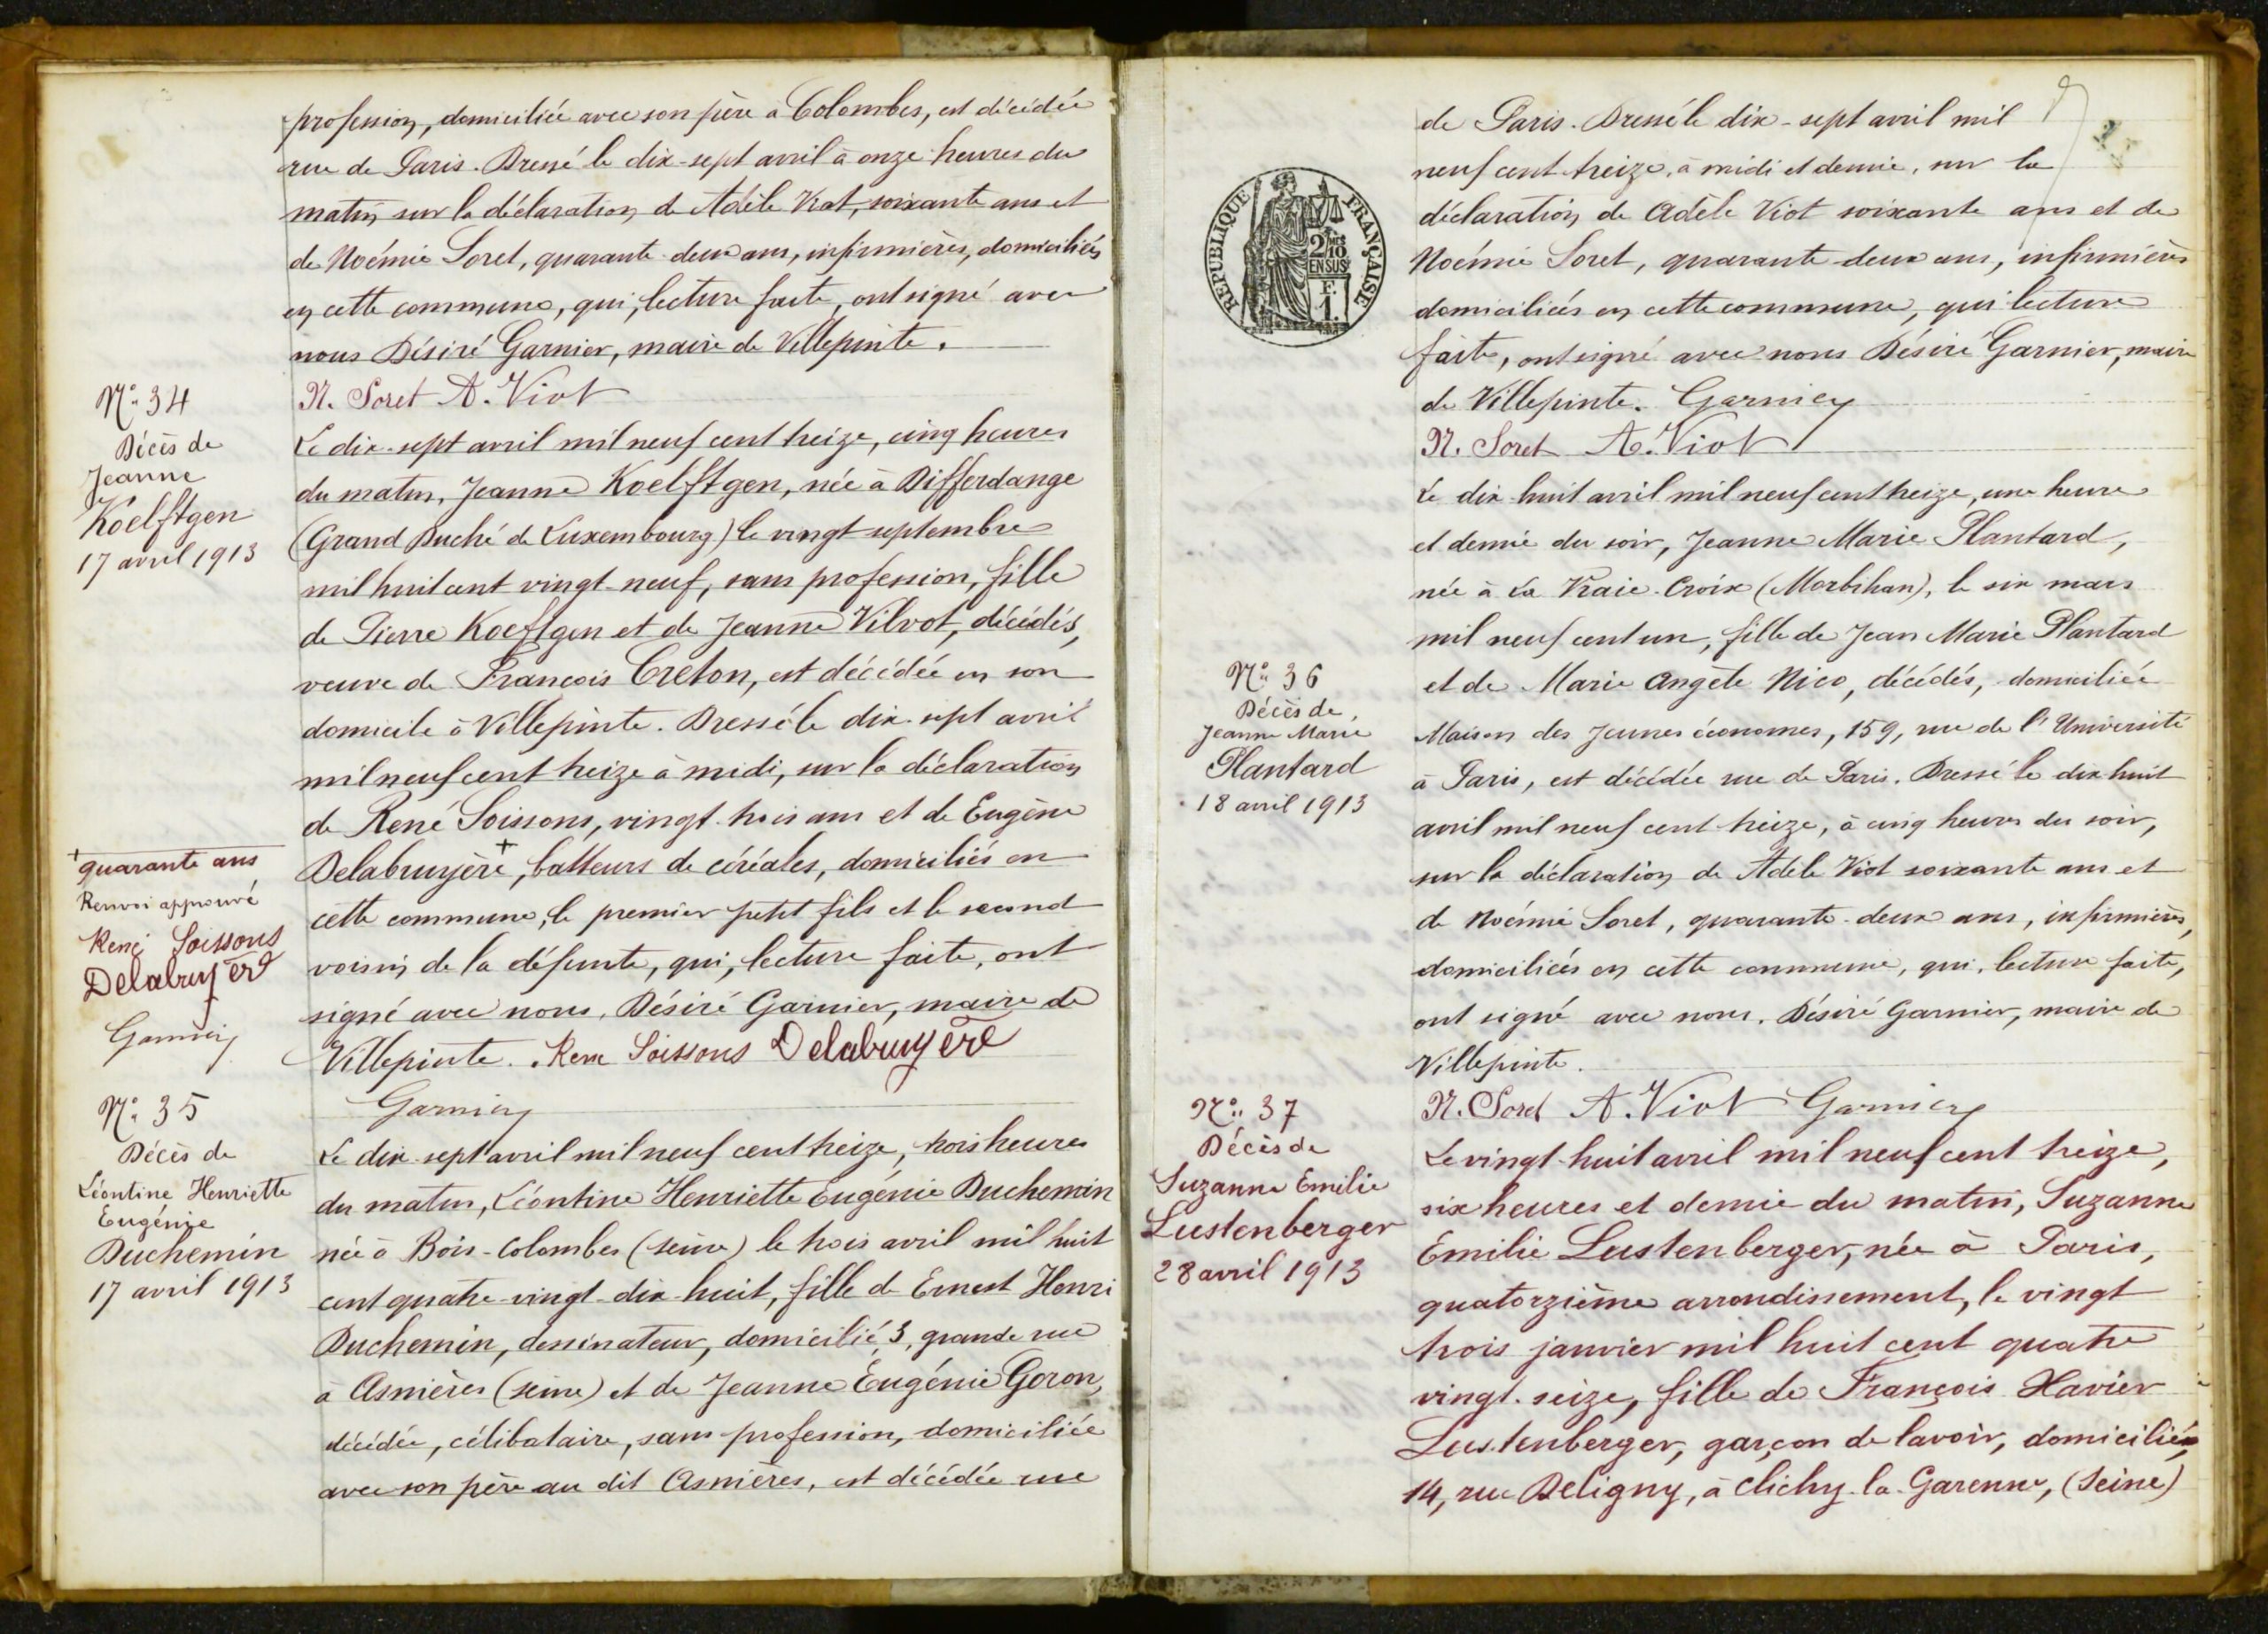 profession, domiciliée avec son père à Colombes, est décédée
rue de Paris. Dressé le dix-sept avril à onze heures du
matin sur la déclaration de Adèle Viot, soixante ans et
de Noémie Soret, quarante-deux ans, infirmières, domiciliées
en cette commune, qui, lecture faite, ont signé avec
nous Désiré Garnier, maire de Villepinte.
N. Soret A. Viot
N° 34
Décès de
Jeanne
Koelftgen
17 avril 1913
Le dix-sept avril mil neuf cent treize, cinq heures
du matin, Jeanne Koelftgen, née à Differdange
(Grand Duché de Luxembourg) le vingt septembre
mil huit cent vingt-neuf, sans profession, fille
de Pierre Koeftgen et de Jeanne Vilvot, décédés,
veuve de François Creton, est décédée en son
domicile à Villepinte. Dressé le dix-sept avril
mil neuf cent treize à midi, sur la déclaration
de René Soissons, vingt-trois ans et de Eugène
Delabruyère +, batteurs de céréales, domiciliés en
cette commune, le premier petit fils et le second
voisin de la défunte, qui, lecture faite, ont
signé avec nous, Désiré Garnier, maire de
Villepinte. René Soissons Delabruyère
Garnier
+ quarante ans
Renvoi approuvé
René Soissons
Delabruyère
Garnier
N° 35
Décès de
Léontine Henriette
Eugénie
Duchemin
17 avril 1913
Le dix-sept avril mil neuf cent treize, trois heures
du matin, Léontine Henriette Eugénie Duchemin
née à Bois-Colombes (Seine) le trois avril mil huit
cent quatre-vingt-dix-huit, fille de Ernest Henri
Duchemin, dessinateur, domicilié, 3, grande rue
à Asnières (Seine) et de Jeanne Eugénie Goron,
décédée, célibataire, sans profession, domiciliée
avec son père au dit Asnières, est décédée rue
de Paris. Dressé le dix-sept avril mil
neuf cent treize, à midi et demie, sur la
déclaration de Adèle Viot soixante ans et de
Noémie Soret, quarante-deux ans, infirmières
domiciliées en cette commune, qui lecture
faite, ont signé avec nous Désiré Garnier, maire
de Villepinte. Garnier
N. Soret A. Viot
REPUBLIQUE FRANÇAISE
2/10
EN SUS
F.
1.
N° 36
Décès de
Jeanne Marie
Plantard
18 avril 1913
Le dix-huit avril mil neuf cent treize, une heure
et demie du soir, Jeanne Marie Plantard,
née à La Vraie-Croix (Morbihan), le six mars
mil neuf cent un, fille de Jean Marie Plantard
et de Marie Angèle Nico, décédés, domiciliée
Maison des Jeunes économes, 159, rue de l'Université
à Paris, est décédée rue de Paris. Dressé le dix huit
avril mil neuf cent treize, à cinq heures du soir,
sur la déclaration de Adèle Viot soixante ans et
de Noémie Soret, quarante-deux ans, infirmières,
domiciliées en cette commune, qui, lecture faite,
ont signé avec nous, Désiré Garnier, maire de
Villepinte.
N. Soret A. Viot Garnier
N° 37
Décès de
Suzanne Emilie
Lustenberger
28 avril 1913
Le vingt-huit avril mil neuf cent treize,
six heures et demie du matin, Suzanne
Emilie Lustenberger, née à Paris,
quatorzième arrondissement, le vingt
trois janvier mil huit cent quatre
vingt-seize, fille de François Xavier
Lustenberger, garçon de lavoir, domicilié,
14, rue Deligny, à Clichy-la-Garenne, (Seine)